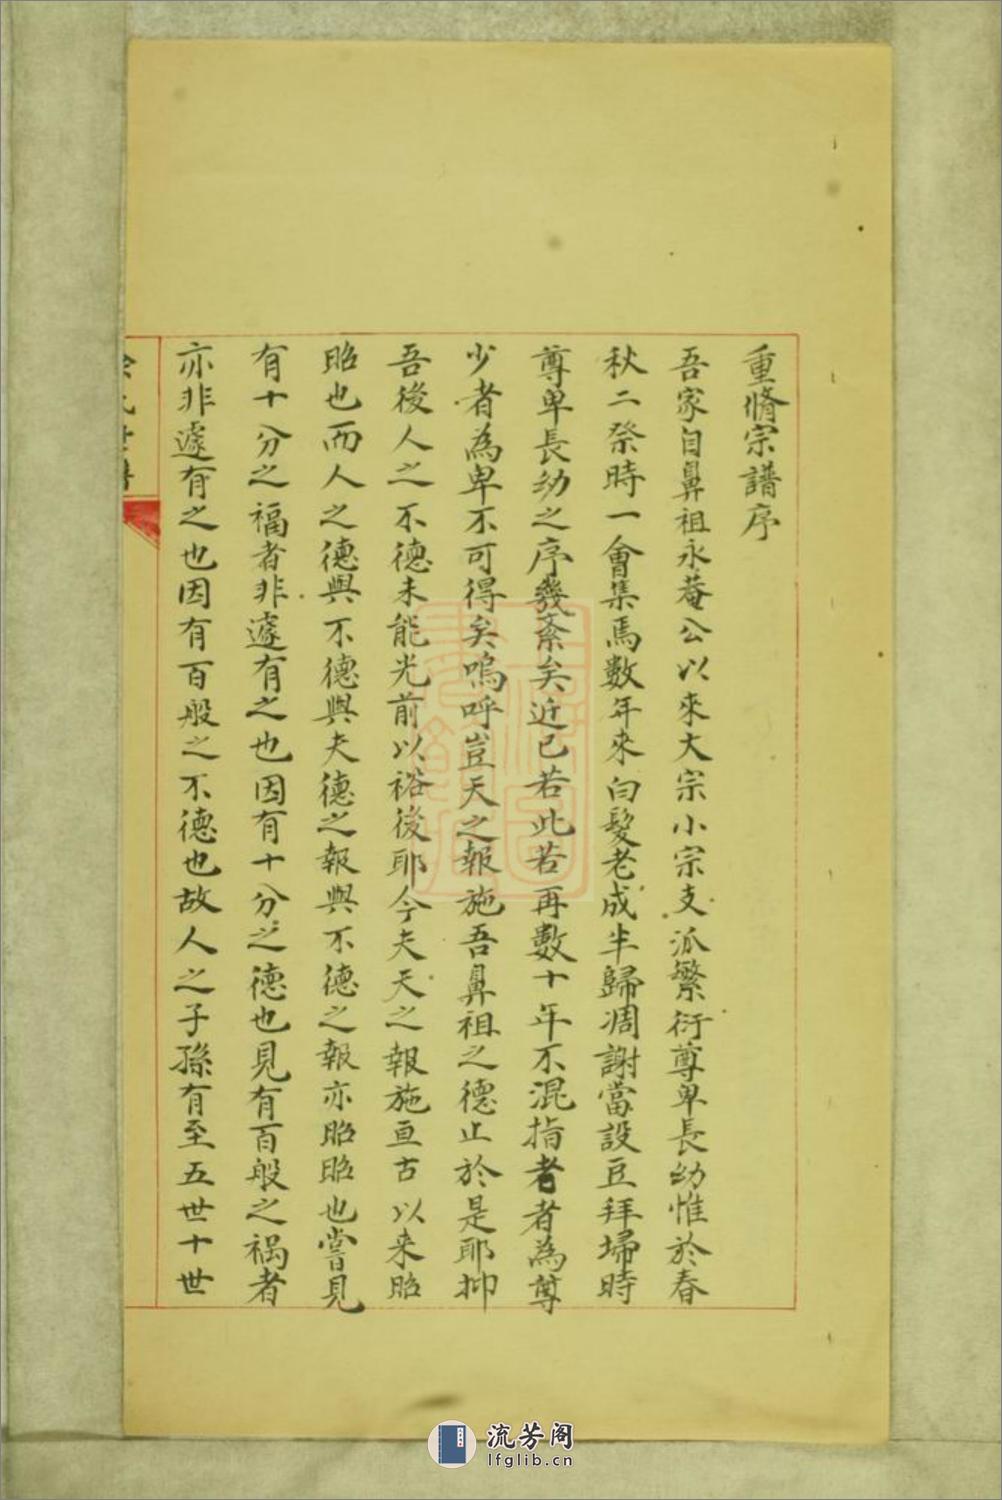 重脩宗譜序
吾家自鼻祖永菴公以來大宗小宗支派繁衍尊卑長幼惟於春
秋二祭時一會集焉數年來白髮老成半歸凋謝當設豆拜埽時
尊卑長幼之序幾紊矣近已若此若再數十年不混指老者為尊
少者為卑不可得矣嗚呼豈天之報施吾鼻祖之德止於是耶抑
吾後人之不德未能光前以裕後耶今夫天之報施亘古以来昭
昭也而人之德與不德與夫德之報與不德之報亦昭昭也嘗見
有十分之福者非遽有之也因有十分之德也見有百般之禍者
亦非遽有之也因有百般之不德也故人之子孫有至五世十世
流芳阁
lfglib.cn